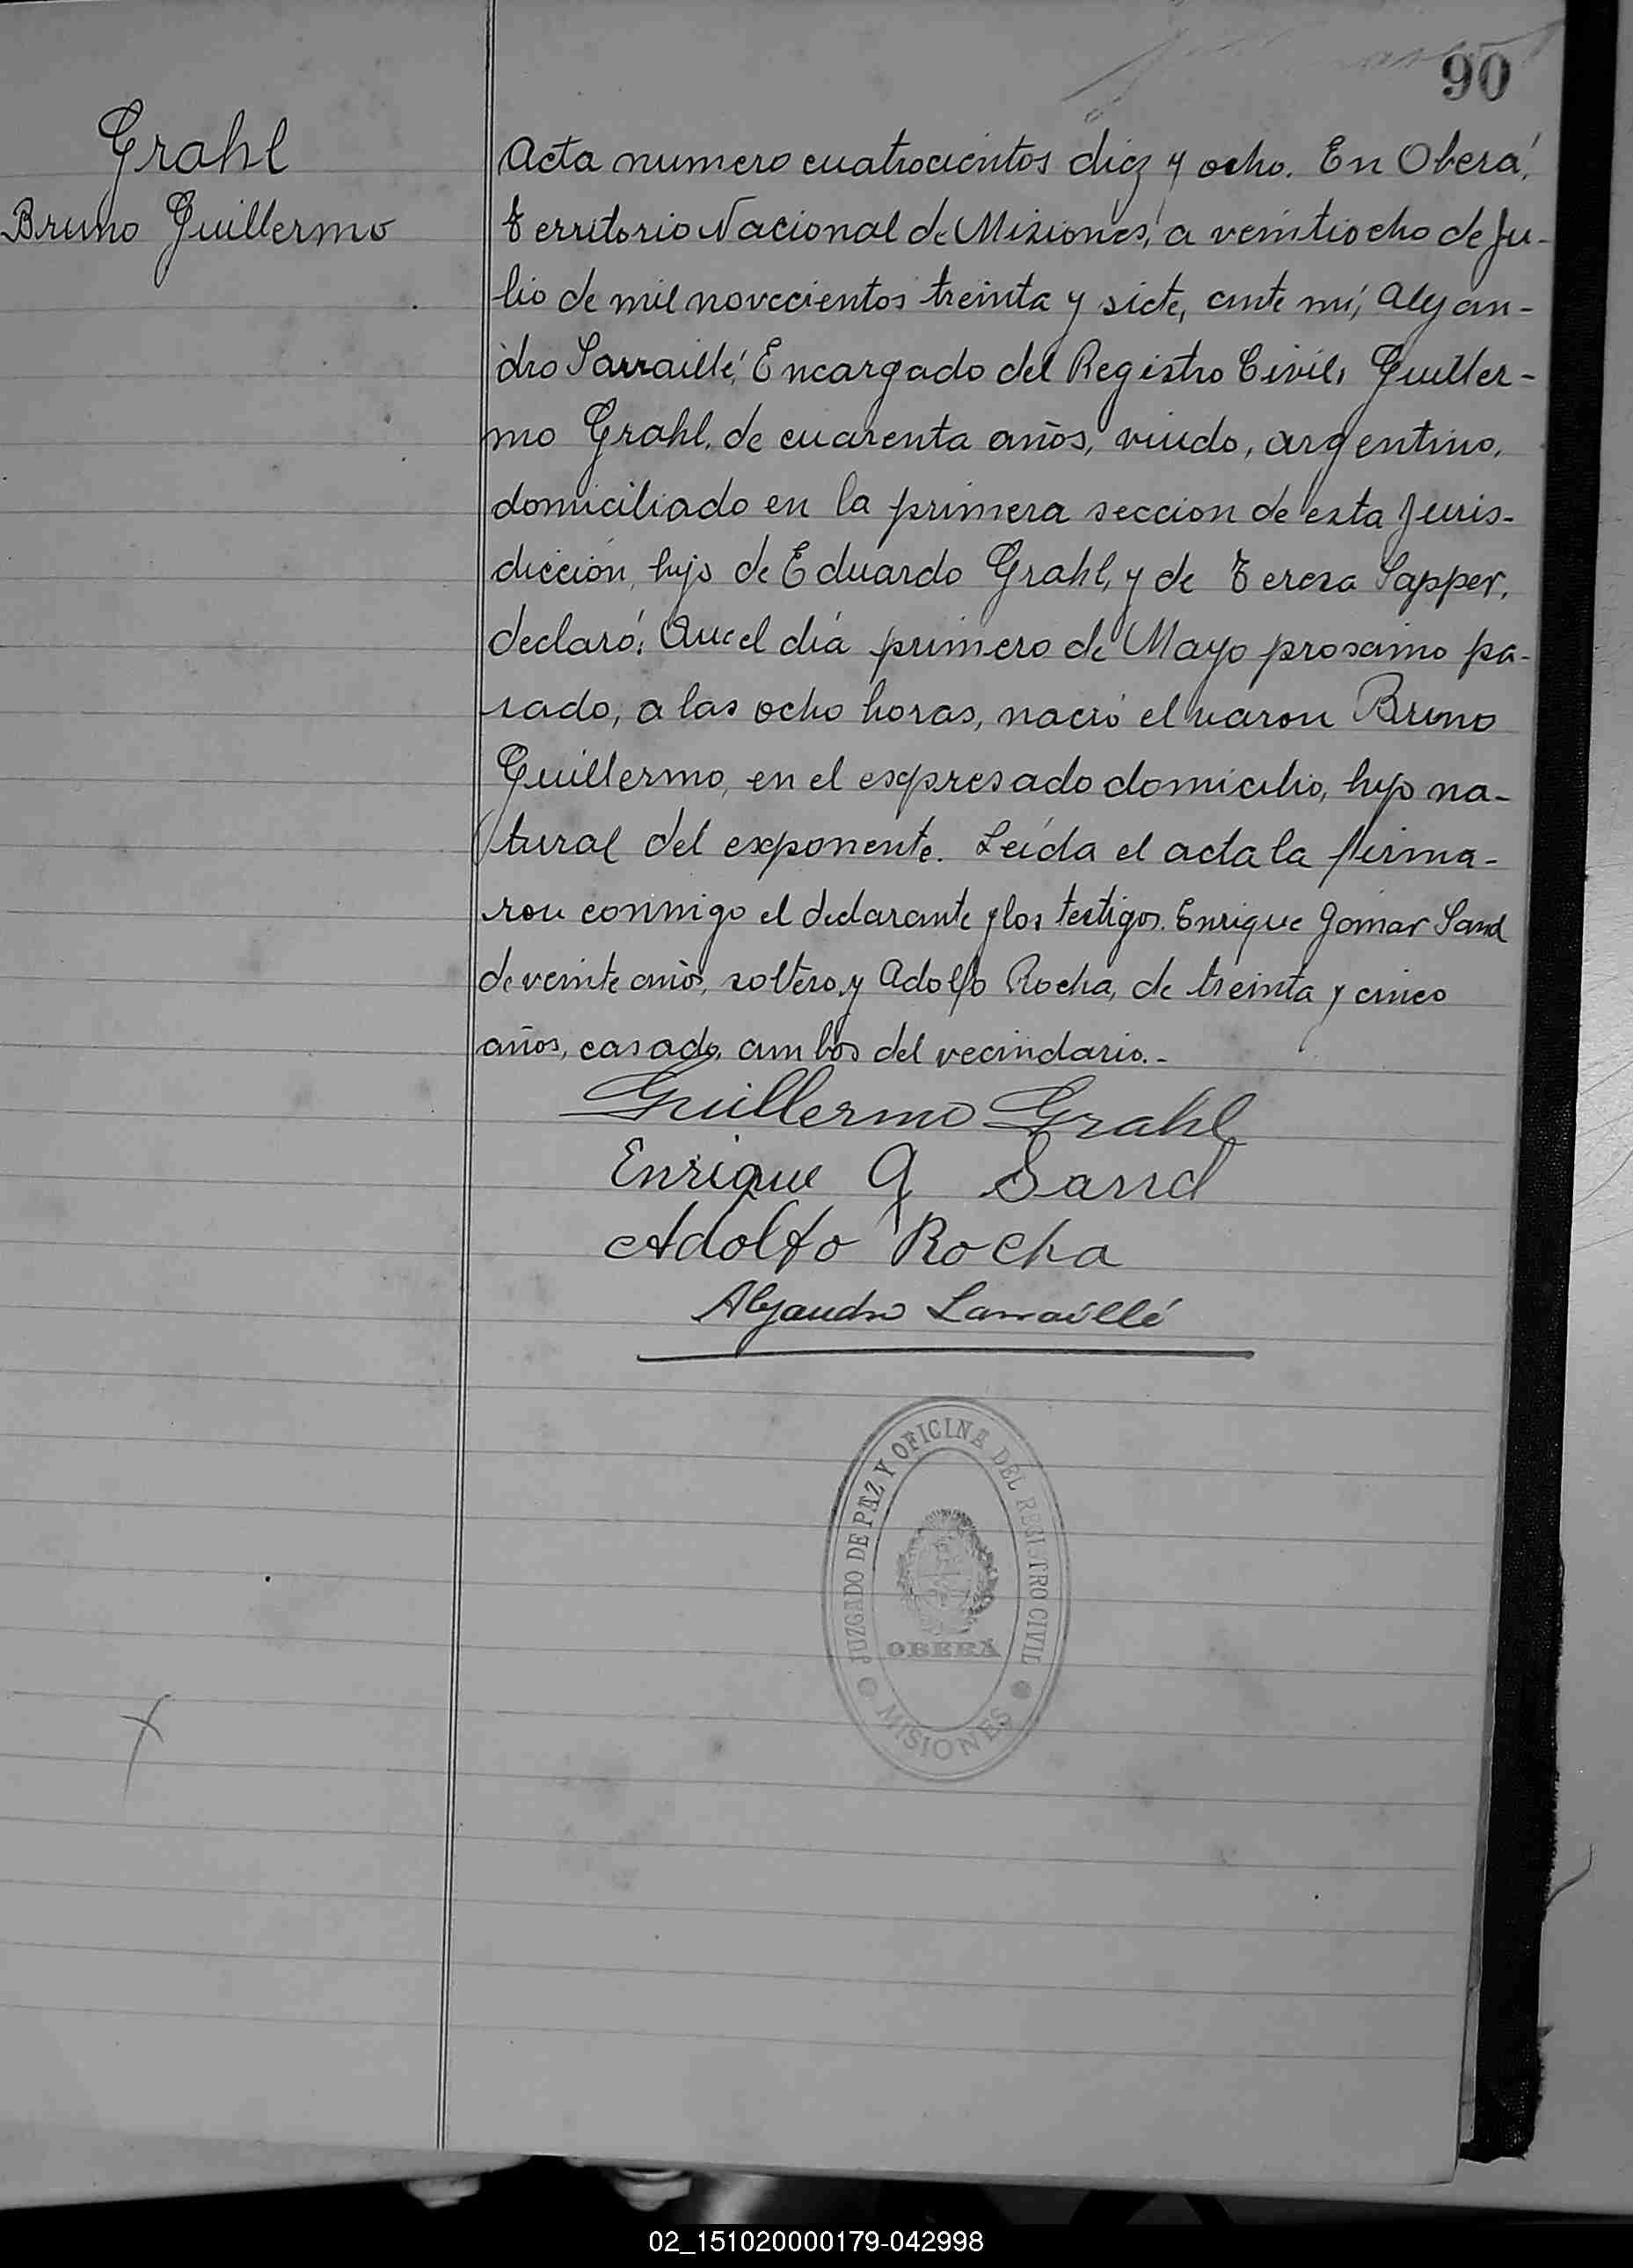 90
Grahl
Bruno Guillermo
Acta numero cuatrocientos diez y ocho. En Oberá,
Territorio Nacional de Misiones, a veintiocho de Ju-
lio de mil novecientos treinta y siete, ante mí, Alejan-
dro Larraillé, Encargado del Registro Civil, Guiller-
mo Grahl, de cuarenta años, viudo, argentino,
domiciliado en la primera seccion de esta Juris-
dicción, hijo de Eduardo Grahl, y de Teresa Sapper,
declaró: Que el día primero de Mayo prosximo pa-
sado, a las ocho horas, nació el varon Bruno
Guillermo, en el esxpresado domicilio, hijo na-
tural del exponente. Leída el acta la firma-
ron conmigo el declarante y los testigos. Enrique Gomar Sand
de veinte años, soltero, y Adolfo Rocha, de treinta y cinco
años, casado, ambos del vecindario.-
Guillermo Grahl
Enrique G Sand
Adolfo Rocha
Alejandro Larraillé
JUZGADO DE PAZ Y OFICINA DEL REGISTRO CIVIL
OBERÁ
MISIONES
02_151020000179-042998